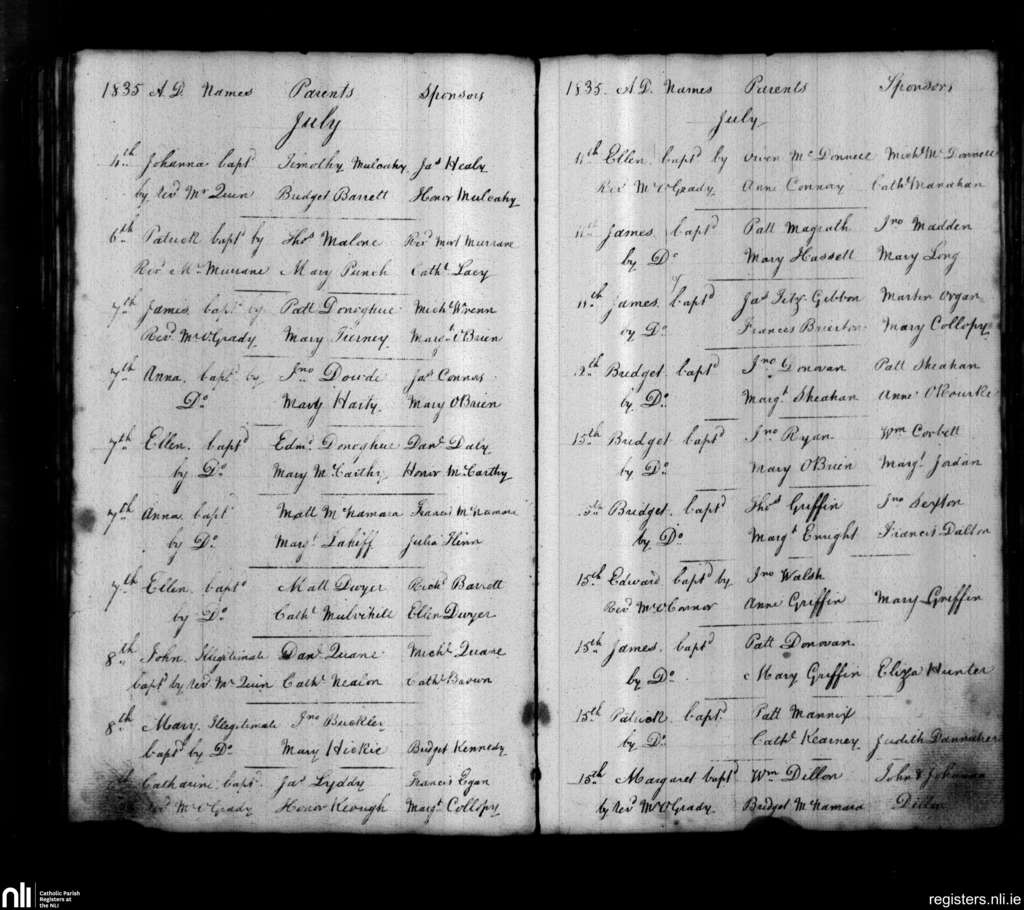 1835 A.D. Names Parents Sponsors
July
4th Johanna bapt.d Timothy Mulcahy Jas Healy
by Revd Mr Quin Bridget Barrett Honor Mulcahy
6th Patrick bapt.d by Thos Malone Revd Mort Murrane
Revd Mr Murrane Mary Punch Cath.e Lacy
7th James bapt.d by Patt Donoghue Mich.l Wrenn
Revd Mr O'Grady Mary Tierney Marg.t O'Brien
7th Anna bapt.d by Jno Dowde Jas Connors
Do Mary Harty Mary O'Brien
7th Ellen bapt.d Edm.d Donoghue Dan.l Daly
by Do Mary McCarthy Honor McCarthy
7th Anna bapt.d Matt McNamara Francis McNamara
by Do Marg.t Lahiff Julia Flinn
7th Ellen bapt.d Matt Dwyer Rich.d Barrett
by Do Cath.e Mulvihill Ellen Dwyer
8th John Illegitimate Dan.l Quane Mich.l Quane
bapt.d by Revd Mr Quin Cath.e Nealon Cath.e Brown
8th Mary Illegitimate Jno Buckley
bapt.d by Do Mary Hickie Bridget Kennedy
Catharine bapt.d Jas Lyddy Francis Egan
Revd Mr O'Grady Honor Keough Marg.t Collopy
1835. A.D. Names Parents Sponsors
July
11th Ellen bapt.d by Owen McDonnell Mich.l McDonnell
Revd Mr O'Grady Anne Conway Cath.e Manahan
11th James bapt.d Patt Magrath Jno Madden
by Do Mary Hassett Mary Long
11th James bapt.d Jas Fitz Gibbon Martin Organ
by Do Frances Brierton Mary Collopy
12th Bridget bapt.d Jno Donovan Patt Sheahan
by Do Marg.t Sheahan Anne O'Rourke
15th Bridget bapt.d Jno Ryan Wm Corbett
by Do Mary O'Brien Marg.t Jordan
15th Bridget bapt.d Thos Griffin Jno Sexton
by Do Marg.t Enright Francis Dalton
15th Edward bapt.d by Jno Walsh
Revd Mr O'Connor Anne Griffin Mary Griffin
15th James bapt.d Patt Donovan
by Do Mary Griffin Eliza Hunter
15th Patrick bapt.d Patt Mannix
by Do Cath.e Kearney Judith Dannaher
15th Margaret bapt.d Wm Dillon John & Johanna
by Revd Mr O'Grady Bridget McNamara Dillon
nli Catholic Parish
Registers at
the NLI
registers.nli.ie